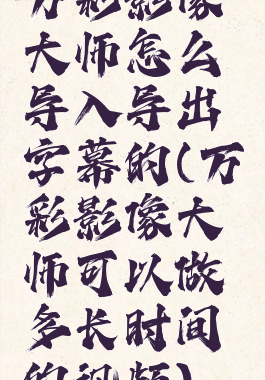 万彩影像
大师怎么
导入导出
字幕的(万
彩影像大
师可以做
多长时间
的视频)